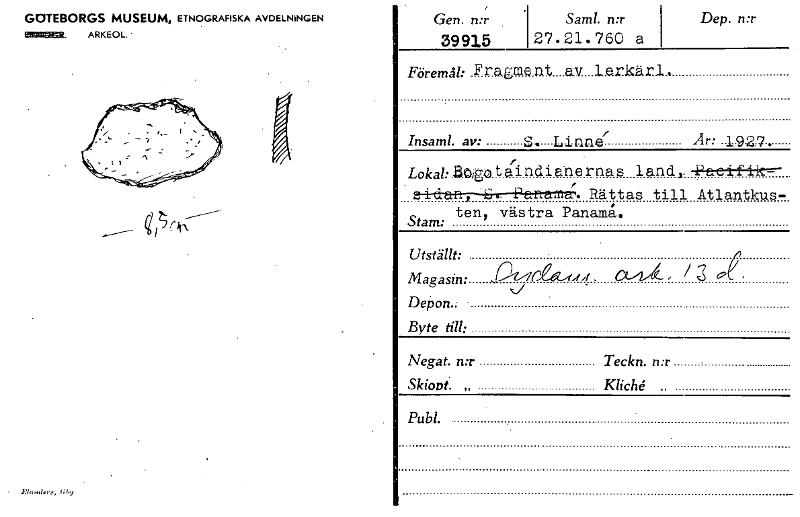 GÖTEBORGS MUSEUM, ETNOGRAFISKA AVDELNINGEN
ARKEOL.
8,5 cm
Elanders, Gbg
Gen. n:r Saml. n:r Dep. n:r
39915 27.21.760 a
Föremål: Fragment av lerkärl.
Insaml. av: S. Linné År: 1927.
Lokal: Bogotáindianernas land, Pacifik-
sidan, S. Panamá. Rättas till Atlantkus-
ten, västra Panamá.
Stam:
Utställt:
Magasin: Sydam. ark. 13 d.
Depon.:
Byte till:
Negat. n:r Teckn. n:r
Skiopt. „ Kliché „
Publ.